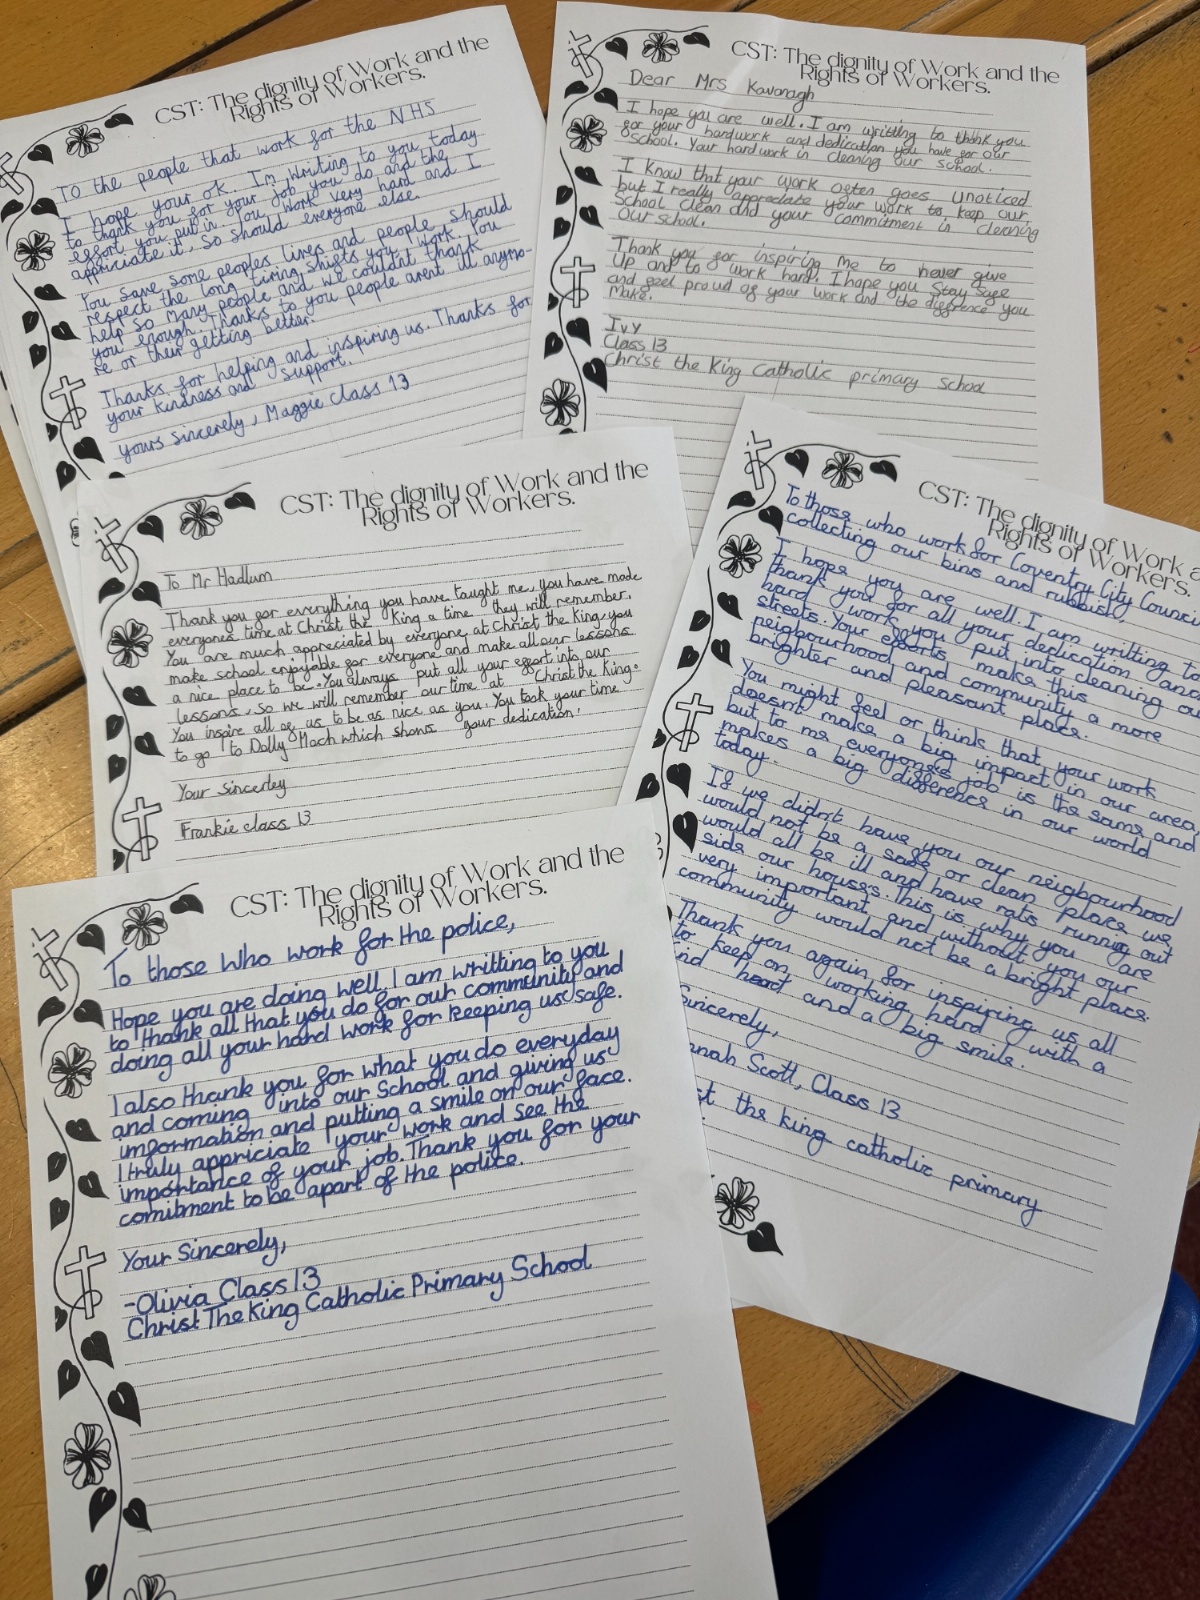 CST: The dignity of Work and the
Rights of Workers.
To the people that work for the NHS
I hope your ok. I'm writing to you today
to thank you for your job you do and the
effort you put in. You work very hard and I
appriciate it, so should everyone else.
You save some peoples lives and people should
respect the long tiring shifts you work. You
help so many people and we couldn't thank
you enough. Thanks to you people arent ill anymo-
re or their getting better.
Thanks for helping and inspiring us. Thanks for
your kindness and support.
yours sincerely, Maggie class 13
CST: The dignity of Work and the
Rights of Workers.
Dear Mrs Kavanagh
I hope you are well. I am writting to thank you
for your hardwork and dedication you have for our
school. Your hardwork in cleaning our school.
I know that your work often goes unoticed
but I really appreciate your work to keep our
School clean and your commitment in cleaning
Our school.
Thank you for inspiring me to never give
Up and to work hard. I hope you stay safe
and feel proud of your work and the diffrence you
make.
Ivy
Class 13
Christ the King Catholic primary school
CST: The dignity of Work and the
Rights of Workers.
To Mr Hadlum
Thank you for everything you have taught me, you have made
everyones time at Christ the King a time they will remember.
You are much appreciated by everyone at Christ the King, you
make school enjoyable for everyone and make all our lessons
a nice place to be. You always put all your effort into our
lessons, so we will remember our time at Christ the King.
You inspire all of us to be as nice as you. You took your time
to go to Dolly Moch which shows your dedication.
Your Sincerley
Frankie class 13
CST: The dignity of Work a
Rights of Workers.
To those who work for Coventry City Counci
collecting our bins and rubbish,
I hope you are well. I am writting to
thank you for all your dedication and
hard work you put into cleaning ou
streets. Your efforts make this
neigbourhood and community a more
brighter and pleasant place.
You might feel or think that your work
doesn't make a big impact in our area,
but to me everyone's job is the same and
makes a big difference in our world
today.
If we didn't have you our neighbourhood
would not be a safe or clean place we
would all be ill and have rats running out
side our houses. This is why you are
very important and without you our
community would not be a bright place.
Thank you again for inspiring us all
to keep on working hard with a
nd heart and a big smile.
Sincerely,
nnah Scott, Class 13
st the king catholic primary
CST: The dignity of Work and the
Rights of Workers.
To those who work for the police,
Hope you are doing well. I am writting to you
to thank all that you do for our community and
doing all your hard work for keeping us safe.
I also thank you for what you do everyday
and coming into our School and giving us
information and putting a smile on our face.
I truly appriciate your work and see the
importance of your job. Thank you for your
comitment to be apart of the police.
Your Sincerely,
-Olivia Class 13
Christ The King Catholic Primary School